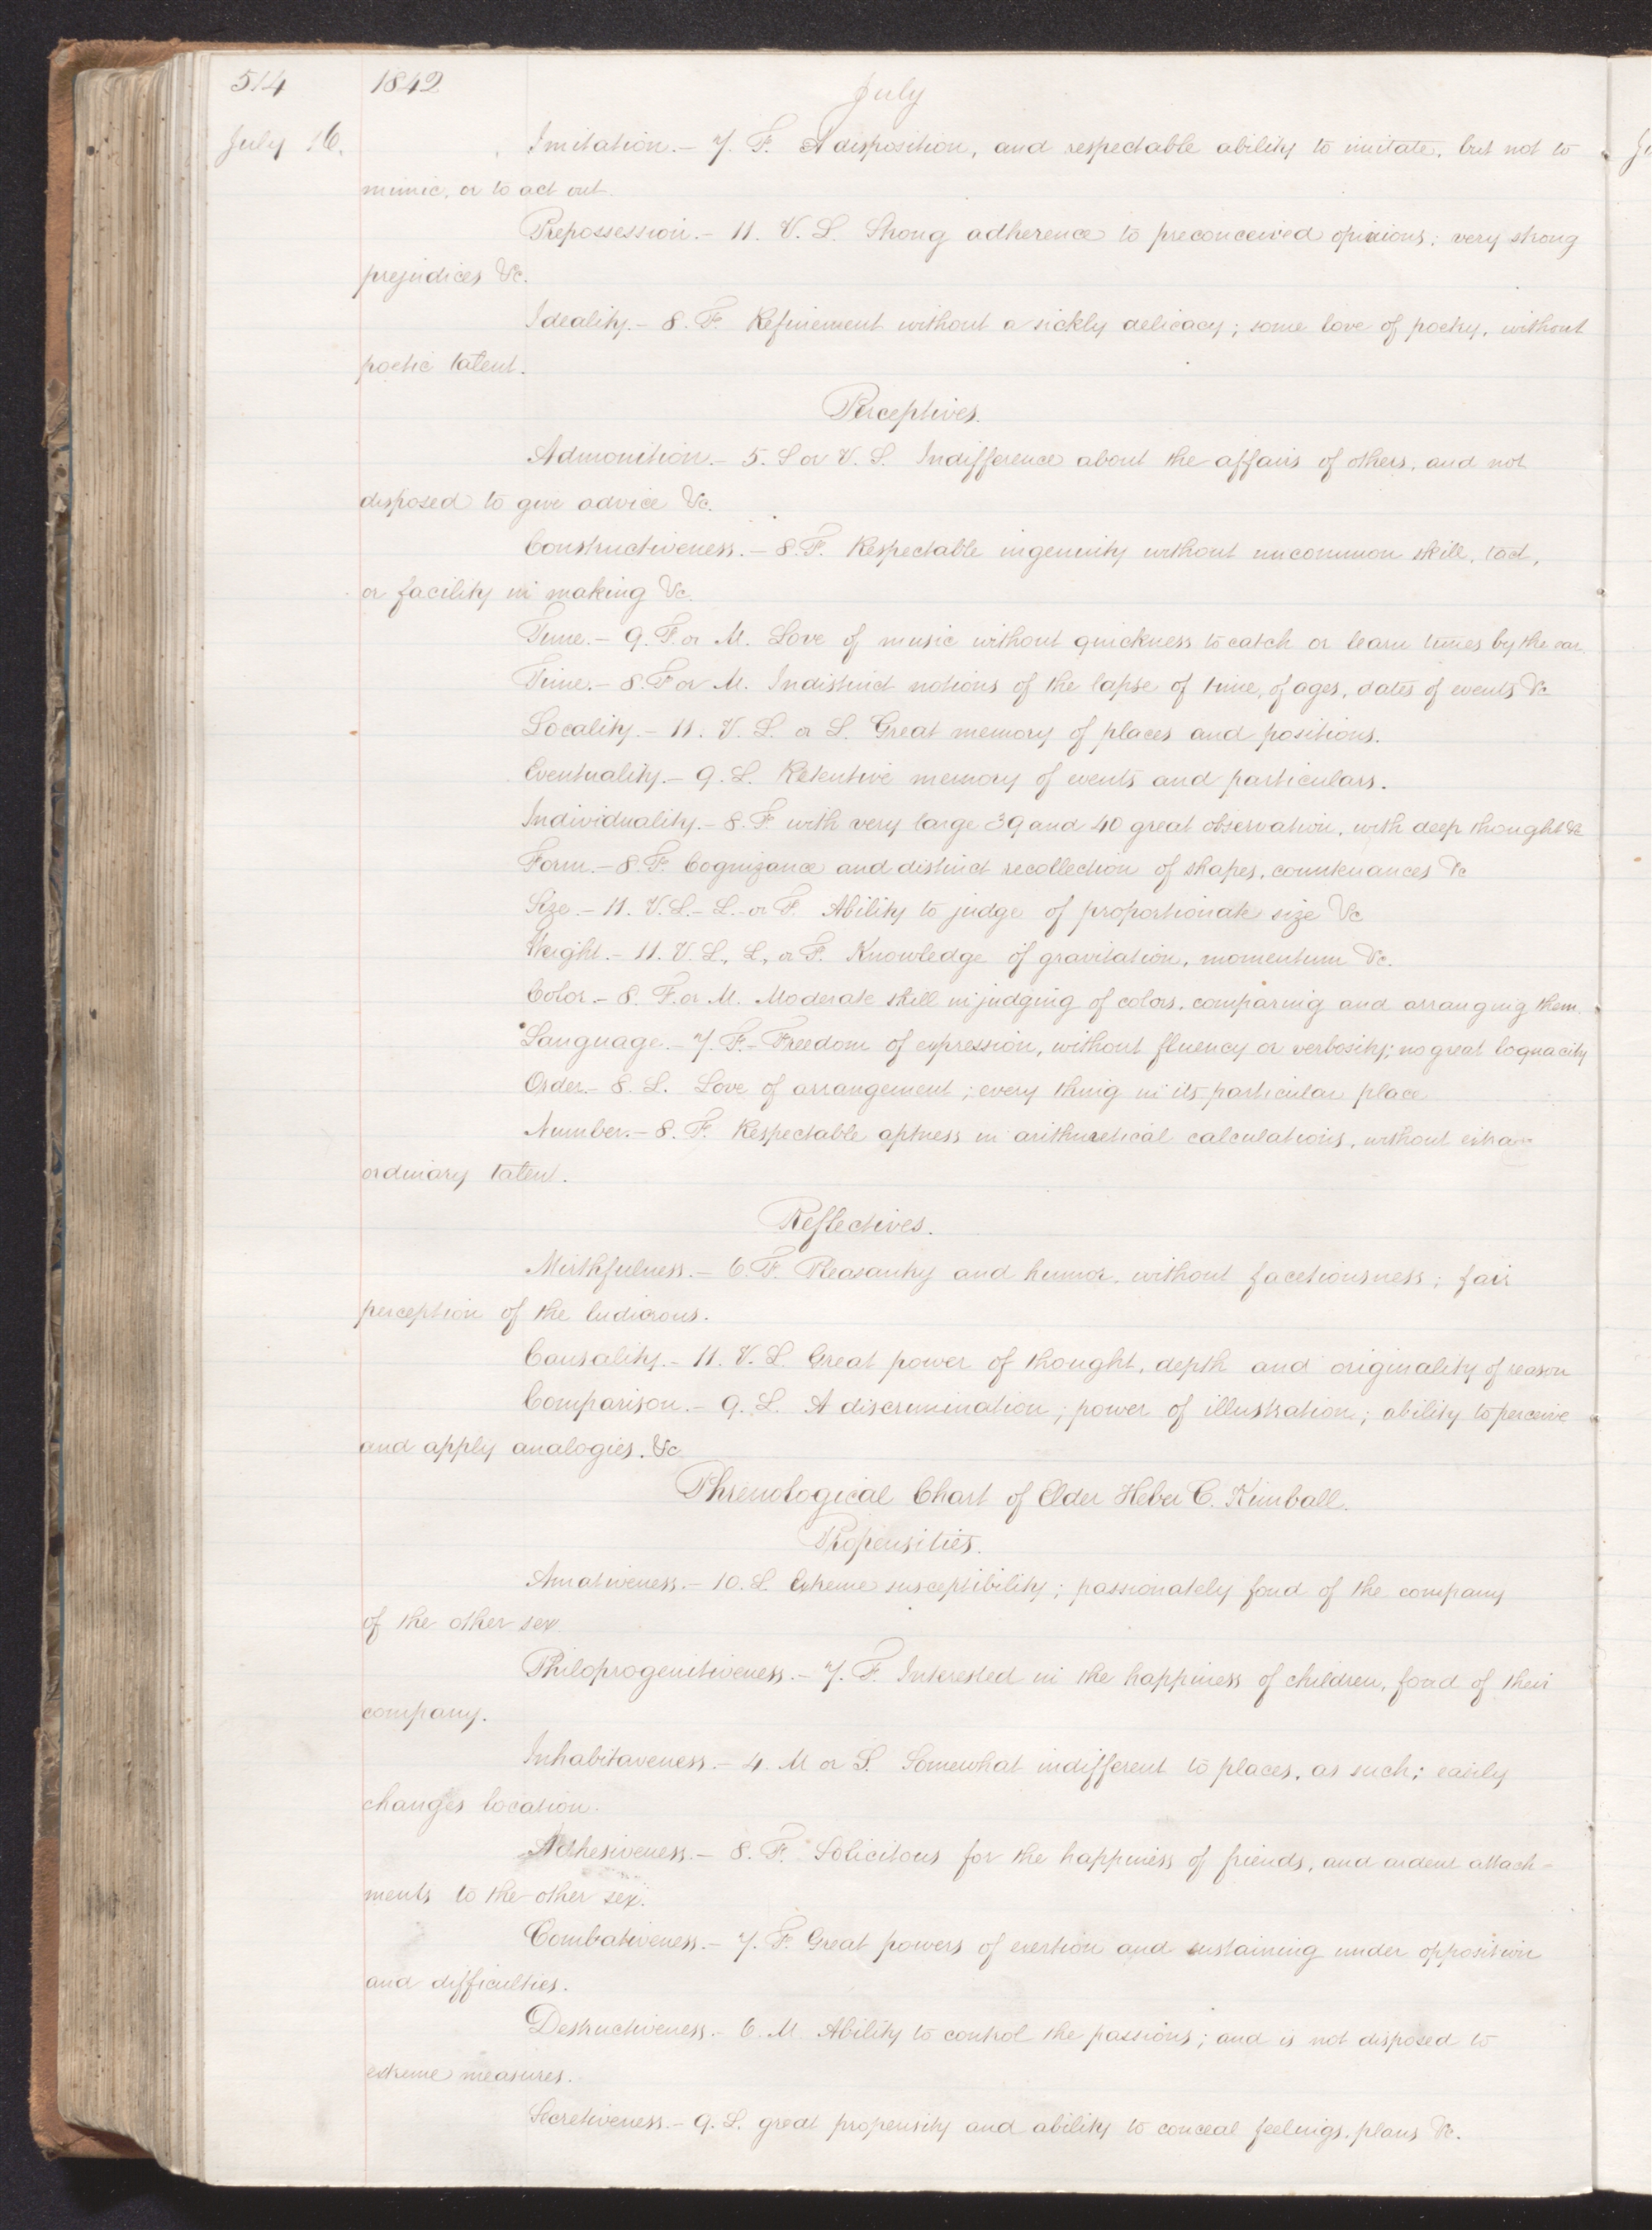 514 1842 July
July 16. Imitation.– 7. F. A disposition, and respectable ability to imitate, but not to
mimic, or to act out.
Prepossession.– 11. V. L. Strong adherence to preconceived opinions; very strong
prejudices &c.
Ideality.– 8. F. Refinement without a sickly delicacy; some love of poetry, without
poetic talent.
Perceptives.
Admonition.– 5. S or V. S. Indifference about the affairs of others, and not
disposed to give advice &c.
Constructiveness.– 8. F. Respectable ingenuity without uncommon skill, tact,
or facility in making &c.
Tune.– 9. F. or M. Love of music without quickness to catch or learn tunes by the ear.
Time.– 8. F or M. Indistinct notions of the lapse of time, of ages, dates of events &c
Locality.– 11. V. L. or L. Great memory of places and positions.
Eventuality.– 9. L. Retentive memory of events and particulars.
Individuality.– 8. F. with very large 39 and 40 great observation, with deep thought &c
Form.– 8. F. Cognizance and distinct recollection of shapes, countenances &c
Size.– 11. V. L.– L.– or F. Ability to judge of proportionate size &c
Weight.– 11. V. L., L., or F. Knowledge of gravitation, momentum &c.
Color.– 8. F. or M. Moderate skill in judging of colors, comparing and arranging them.
Language.– 7. F.– Freedom of expression, without fluency or verbosity; no great loquacity
Order.– 8. L. Love of arrangement; every thing in its particular place.
Number.– 8. F. Respectable aptness in arithmetical calculations, without extra-
ordinary talent.
Reflectives.
Mirthfulness.– 6. F. Pleasantry and humor, without facetiousness; fair
perception of the ludicrous.
Causality.– 11. V. L. Great power of thought, depth and originality of reason
Comparison.– 9. L. A discrimination; power of illustration; ability to perceive
and apply analogies. &c
Phrenological Chart of Elder Heber C. Kimball.
Propensities.
Amativeness.– 10. L Extreme susceptibility; passionately fond of the company
of the other sex.
Philoprogenitiveness.– 7. F. Interested in the happiness of children, fond of their
company.
Inhabitaveness.– 4. M or S. Somewhat indifferent to places, as such; easily
changes location.
Adhesiveness.– 8. F. Solicitous for the happiness of friends, and ardent attach-
ments to the other sex.
Combativeness.– 7. F. Great powers of exertion and sustaining under opposition
and difficulties.
Destructiveness.– 6. M. Ability to control the passions; and is not disposed to
extreme measures.
Secretiveness.– 9. L. great propensity and ability to conceal feelings, plans &c.